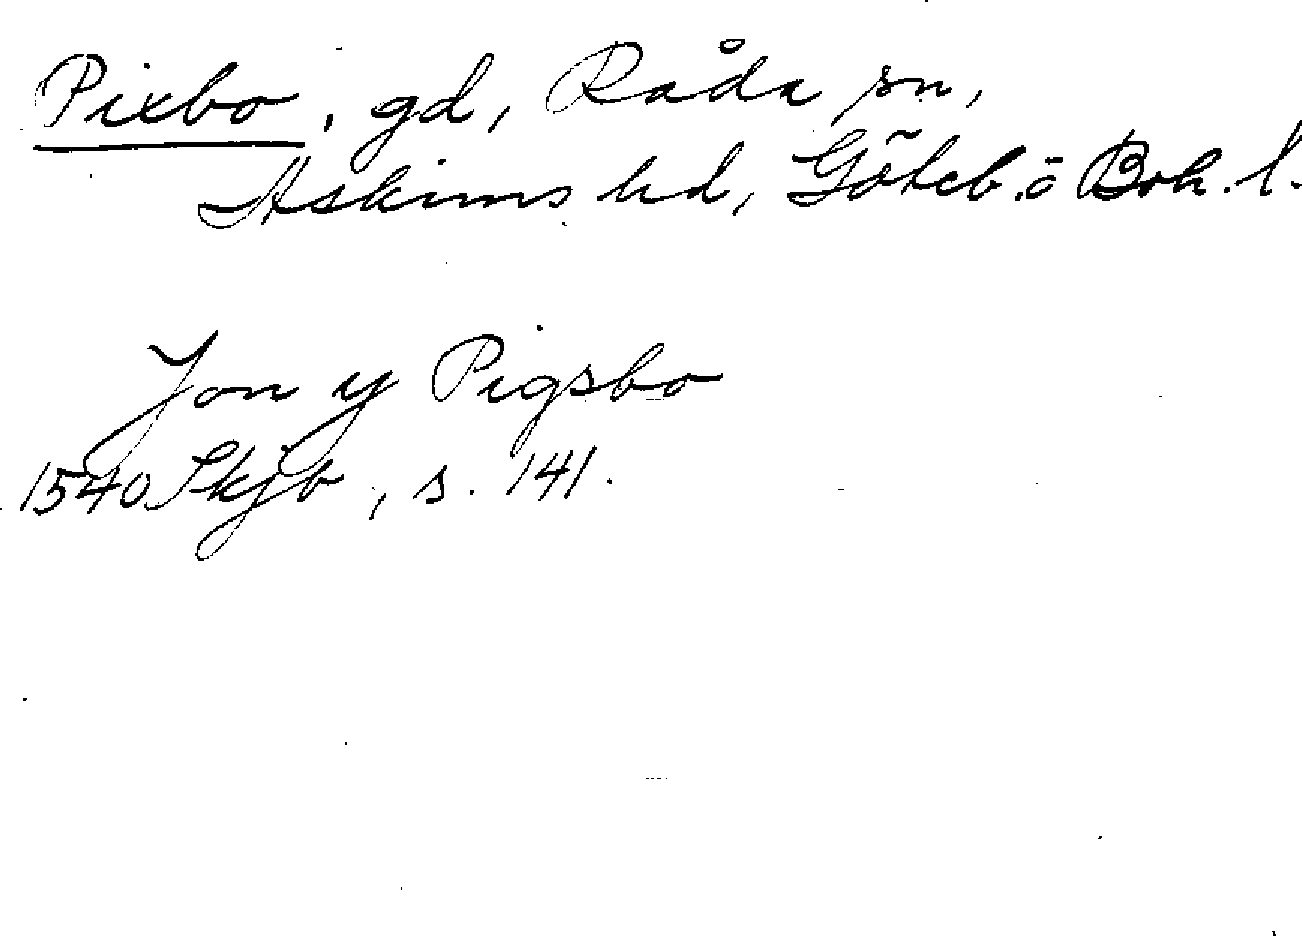 Pixbo, gd, Råda sn,
Askims hd, Göteb. o Boh. l.
Jon y Pigsbo
1540 Skjb, s. 141.